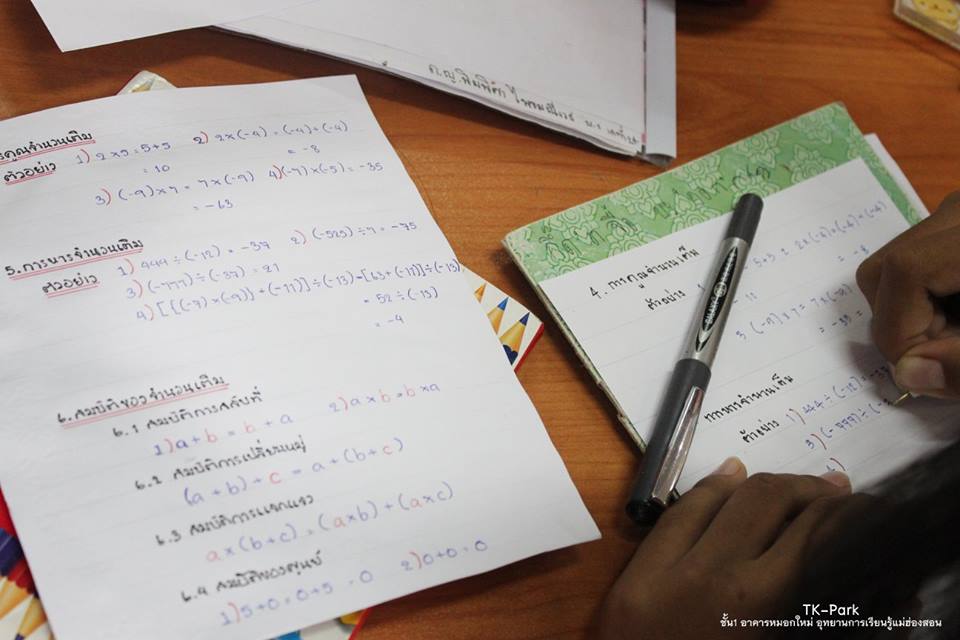 ด.ญ.พิมพิศา
การคูณจำนวนเต็ม
ตัวอย่าง 1) 2×5 = 5+5 2) 2×(-4) = (-4)+(-4)
= 10 = -8
3) (-9)×7 = 7×(-9) 4) (-7)×(-5) = -35
= -63
5. การหารจำนวนเต็ม
ตัวอย่าง 1) 444÷(-12) = -37 2) (-525)÷7 = -75
3) (-777)÷(-37) = 21
4) [{(-7)×(-9)}+(-11)]÷(-13) = [63+(-11)]÷(-13)
= 52÷(-13)
= -4
6. สมบัติของจำนวนเต็ม
6.1 สมบัติการสลับที่
1) a+b = b+a 2) a×b = b×a
6.2 สมบัติการเปลี่ยนหมู่
(a+b)+c = a+(b+c)
6.3 สมบัติการแจกแจง
a×(b+c) = (a×b)+(a×c)
6.4 สมบัติของศูนย์
1) 5+0 = 0+5 = 0 2) 0+0 = 0
4. การคูณจำนวนเต็ม
ตัวอย่าง
3 (-9)×7 = 7×(-9)
การหารจำนวนเต็ม
ตัวอย่าง 1) 444÷(-12)
3) (-777)÷(-3
TK-Park
ชั้น1 อาคารหมอกใหม่ อุทยานการเรียนรู้แม่ฮ่องสอน